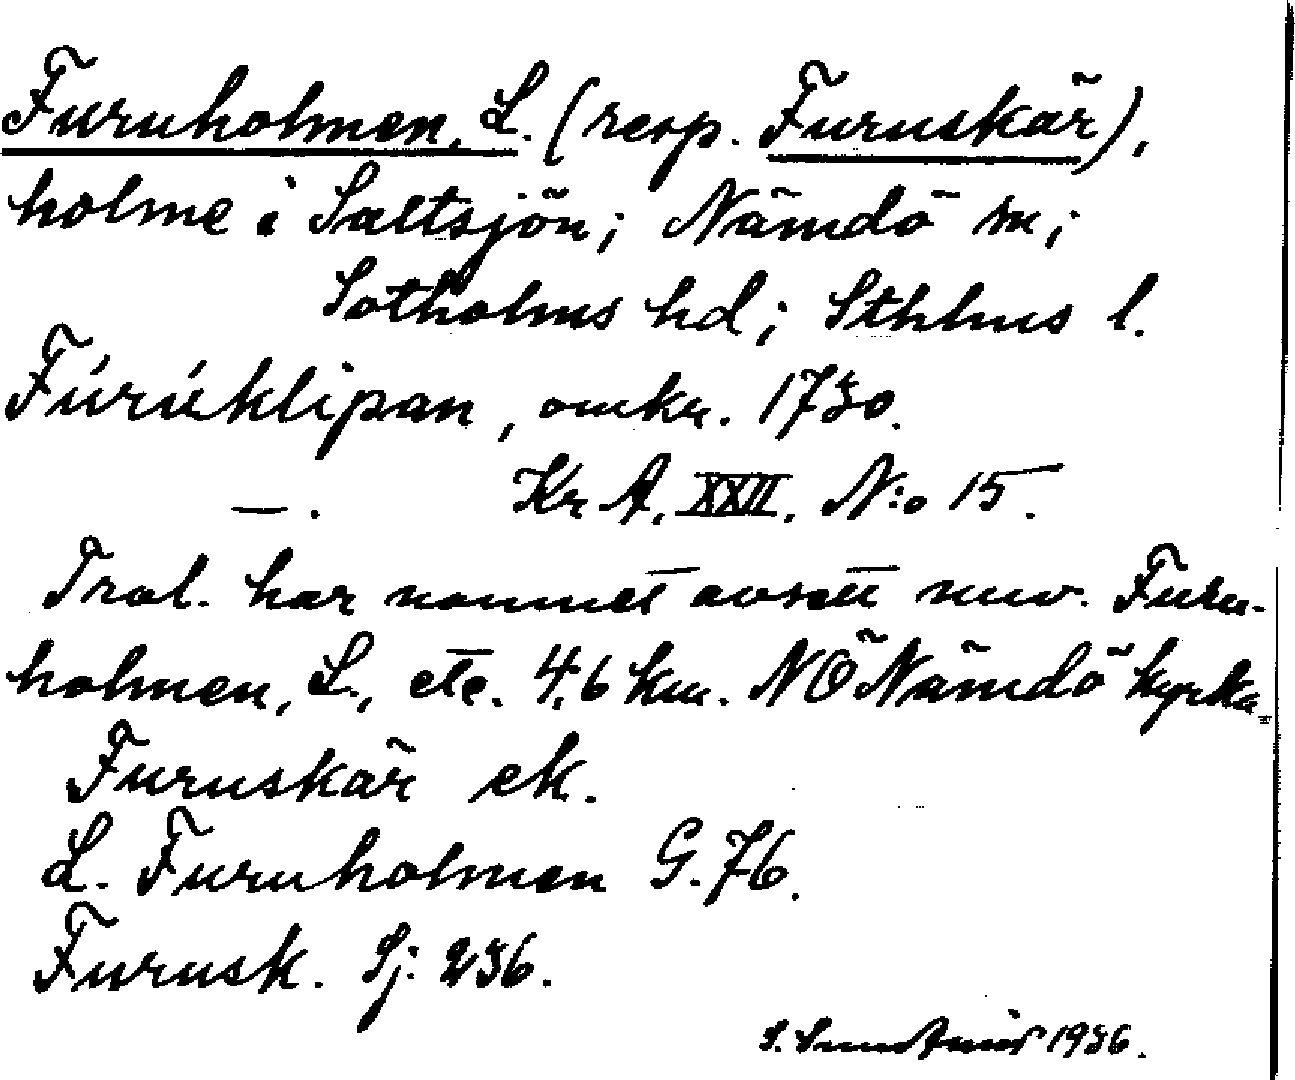 Furuholmen, L. (resp. Furuskär),
holme i Saltsjön; Nämdö sn;
Sotholms hd; Sthlms l.
Fúrúklipan, omkr. 1730.
—. Kr A, XXII, N:o 15.
Trol. har namnet avsett nuv. Furu-
holmen, L., etc. 4,6 km. NÖ Nämdö kyrka
Furuskär ek.
L. Furuholmen G. 76.
Furusk. Sj: 236.
S. 1936.